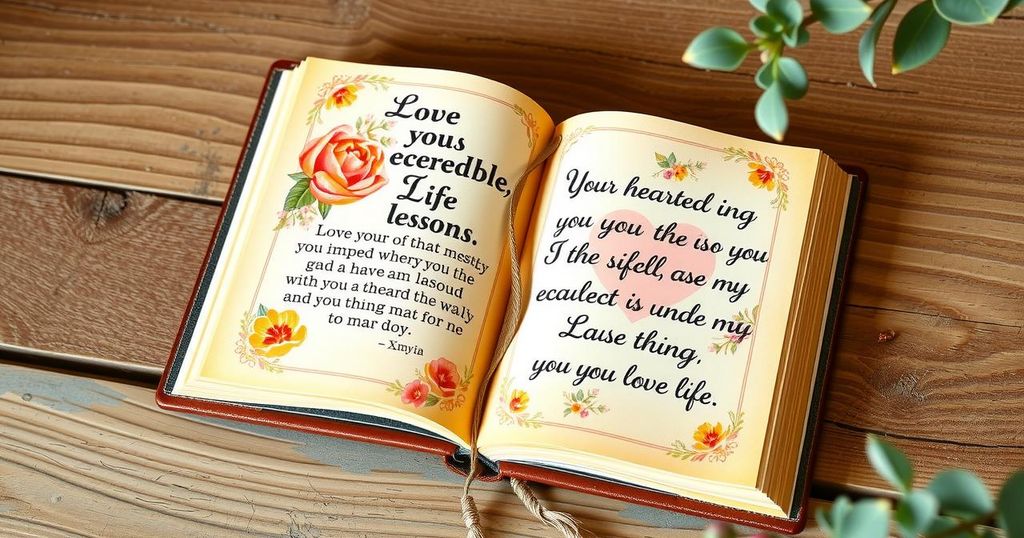 Love
yous
eceredble,
Life
lessons.
Love your of that mestly
you imped whery you the
gad a have am lasoud
with you a theard the waly
and you thing mat for ne
to mar doy.
– Xmyia
Your hearted ing
you you the iso you
I the sifell, ase my
ecailect is unde my
Lause thing,
you you love life.